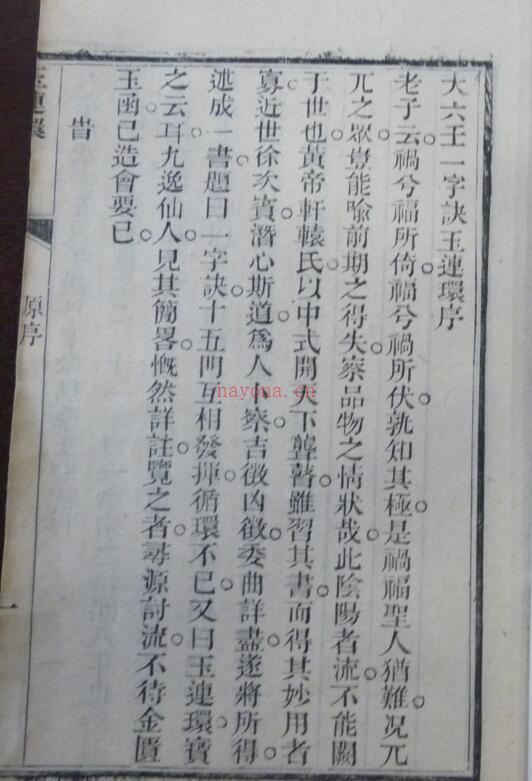 大六壬一字訣玉連環序
老子云禍兮福所倚福兮禍所伏孰知其極是禍福聖人猶難况元
元之眾豈能喻前期之得失察品物之情狀哉此陰陽者流不能闕
于世也黃帝軒轅氏以中式開天下聾瞽雖習其書而得其妙用者
寡近世徐次賓潛心斯道爲人卜察吉徵凶徵委曲詳盡遂將所得
述成一書題曰一字訣十五門互相發揮循環不已又曰玉連環寶
之云耳九逸仙人見其簡畧慨然詳註覽之者尋源討流不待金匱
玉函已造會要已
旹
連環
原序
一
nayona.cn